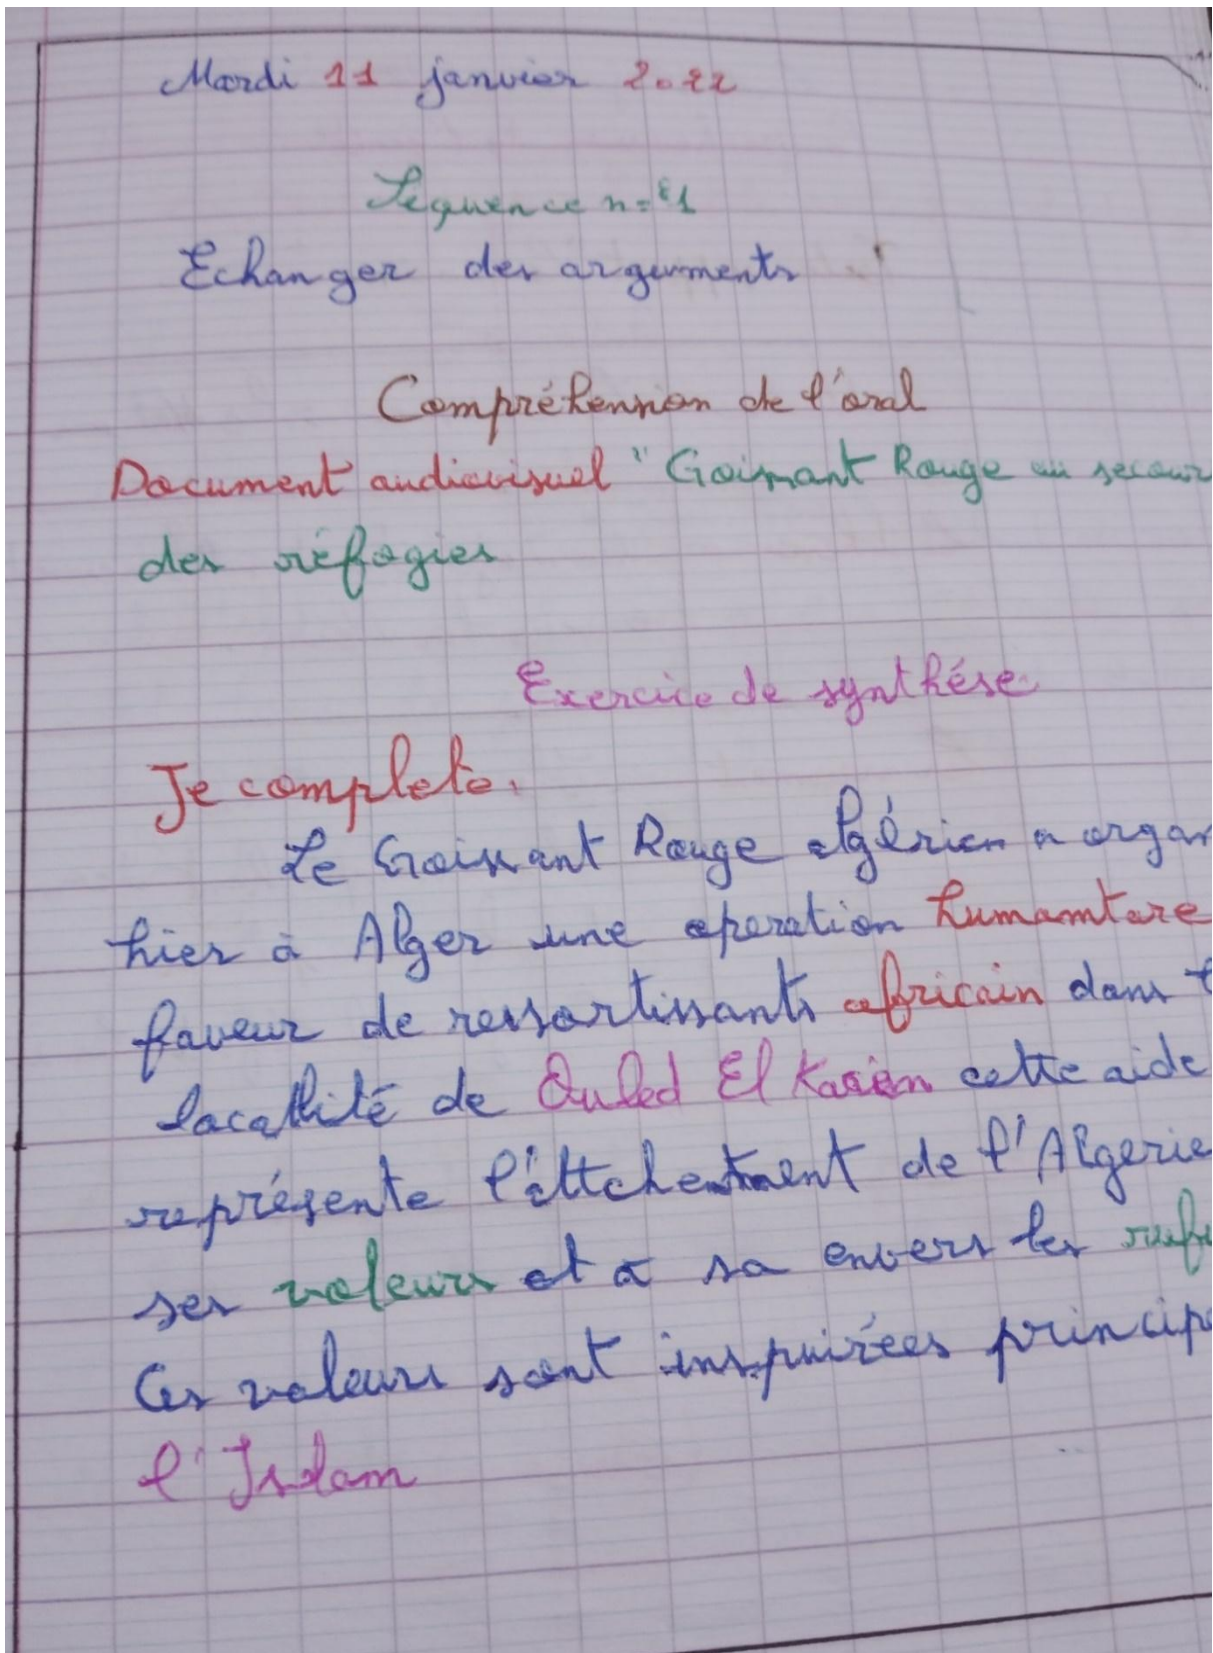 Mardi 11 janvier 2022
Séquence n=°1
Echanger des arguments
Compréhension de l'oral
Document audiovisuel "Croissant Rouge au secour
des réfogies
Exercice de synthése
Je complete.
Le Croissant Rouge algérien a organ
hier à Alger une operation humamtare
faveur de ressortissants africain dans
locallité de Ouled El cette aide
représente de l'Algerie
ses valeurs et à sa envers les
Ces valeurs sont inspuirées princip
l'Islam